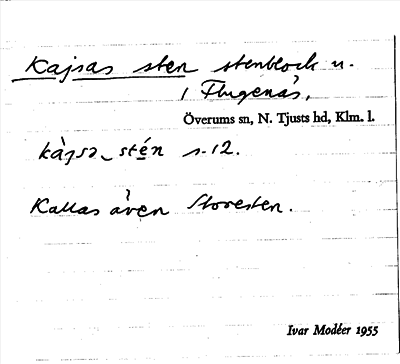 Kajsas sten stenblock u.
i Flugenäs,
Överums sn, N. Tjusts hd, Klm. l.
kàjsa stén s. 12.
Kallas även Storesten.
Ivar Modéer 1955